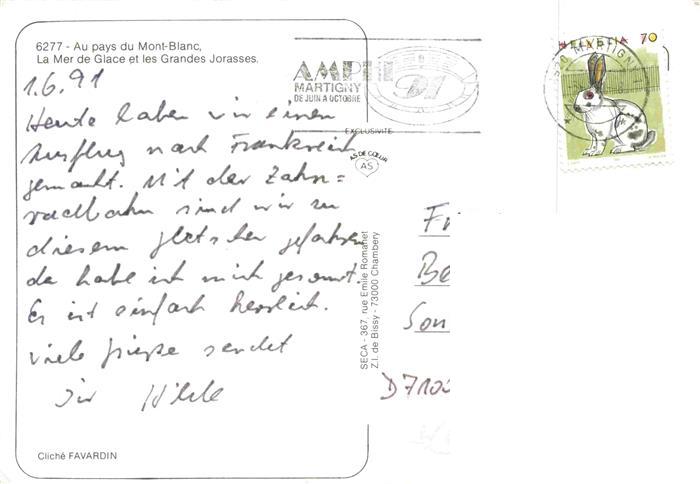 6277 - Au pays du Mont-Blanc,
La Mer de Glace et les Grandes Jorasses.
1.6.91
Heute haben wir einen
Ausflug nach Frankreich
gemacht. Mit der Zahn=
radbahn sind wir zu
diesem Gletscher gefahren
da habe ich mich gesonnt.
Es ist einfach herrlich.
Viele Grüße sendet
Dir
Cliché FAVARDIN
MARTIGNY
DE JUIN A OCTOBRE
EXCLUSIVITE
AS DE CŒUR
AS
SECA - 367, rue Emile Romanet
Z.I. de Bissy - 73000 Chambery
HELVETIA 70
MARTIGNY
F
Be
Son
D7100